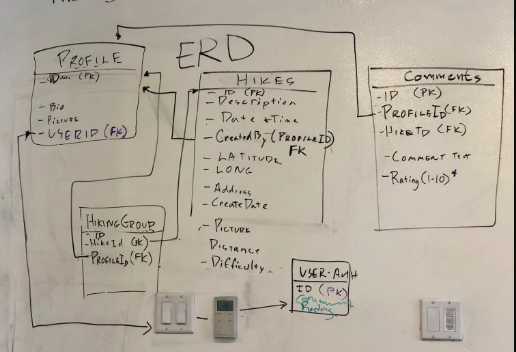 ERD
PROFILE
(PK)
- Bio
- PICTURE
- USERID (FK)
HIKES
- ID (PK)
- Description
- Date + Time
- CreatedBy (PROFILEID)
FK
- LATITUDE
- LONG
- Address
- CreateDate
- PICTURE
Distance
- Difficulty
Comments
- ID (PK)
- PROFILEID (FK)
- HIKEID (FK)
- COMMENT TEXT
- Rating (1-10)*
HIKINGGROUP
- ID
- HikeId (FK)
- PROFILEID (FK)
USER-AUTH
ID (PK)